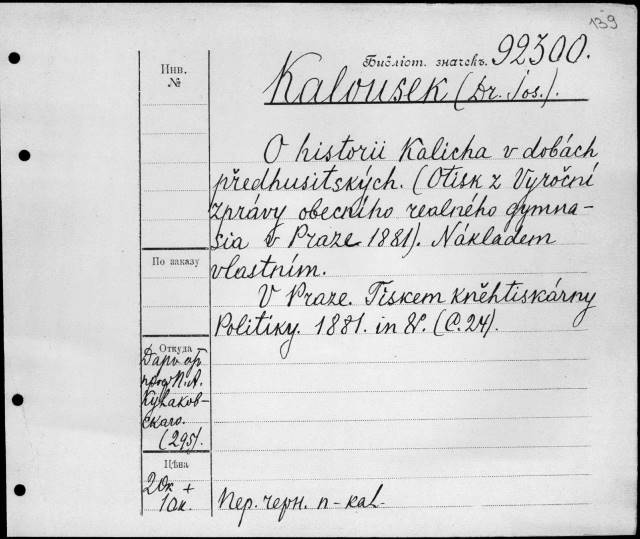 139
Библіот. значекъ. 92300.
Инв.
№
Kalousek (Dr. Jos.).
O historii Kalicha v dobách
předhusitských. (Otisk z Výroční
zprávy obecního realného gymna-
sia v Praze 1881). Nákladem
По заказу
vlastním.
V Praze. Tiskem kněhtiskárny
Politiky. 1881. in 8°. (C. 24).
Откуда
Даръ
проф. П. А.
Кулаков-
скаго.
(295).
Цѣна
20к +
10к.
Пер. черн. п-kal-